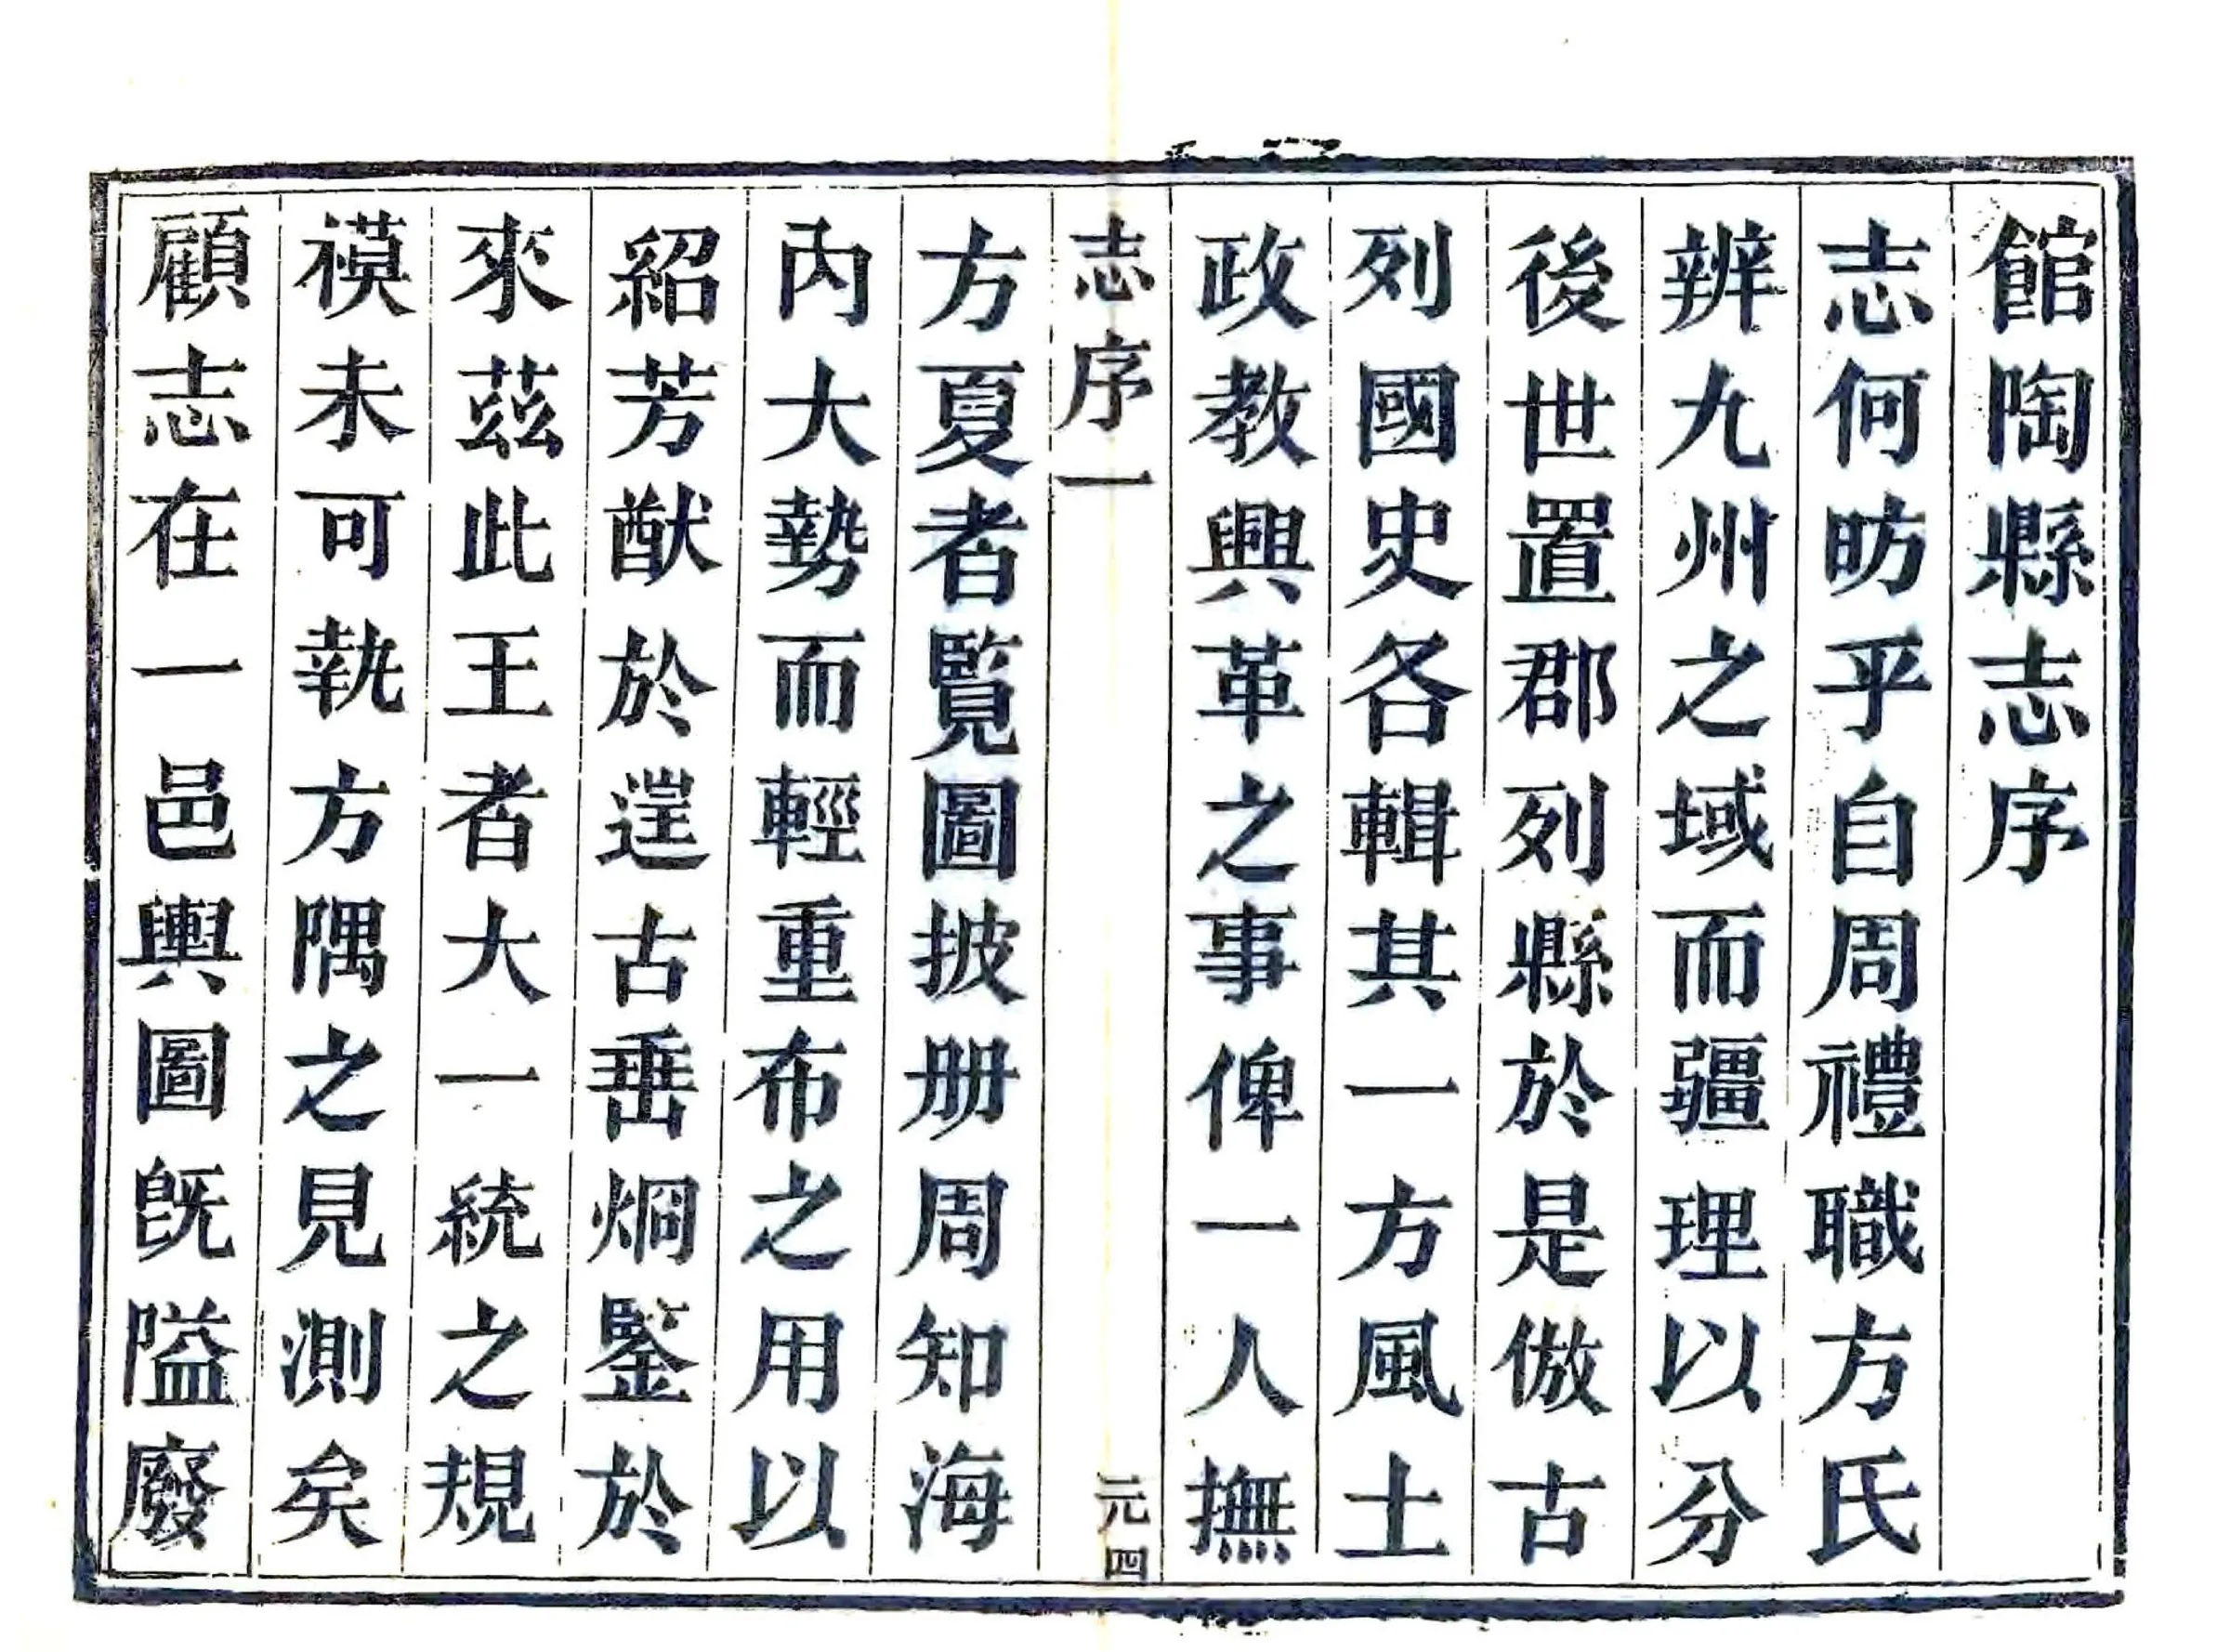 館陶縣志序
志何昉乎自周禮職方氏
辨九州之域而疆理以分
後世置郡列縣於是倣古
列國史各輯其一方風土
政教興革之事俾一人撫
志序一
元四
方夏者覧圖披册周知海
內大勢而輕重布之用以
紹芳猷於遑古垂烱鑒於
來茲此王者大一統之規
模未可執方隅之見測矣
顧志在一邑輿圖旣隘廢